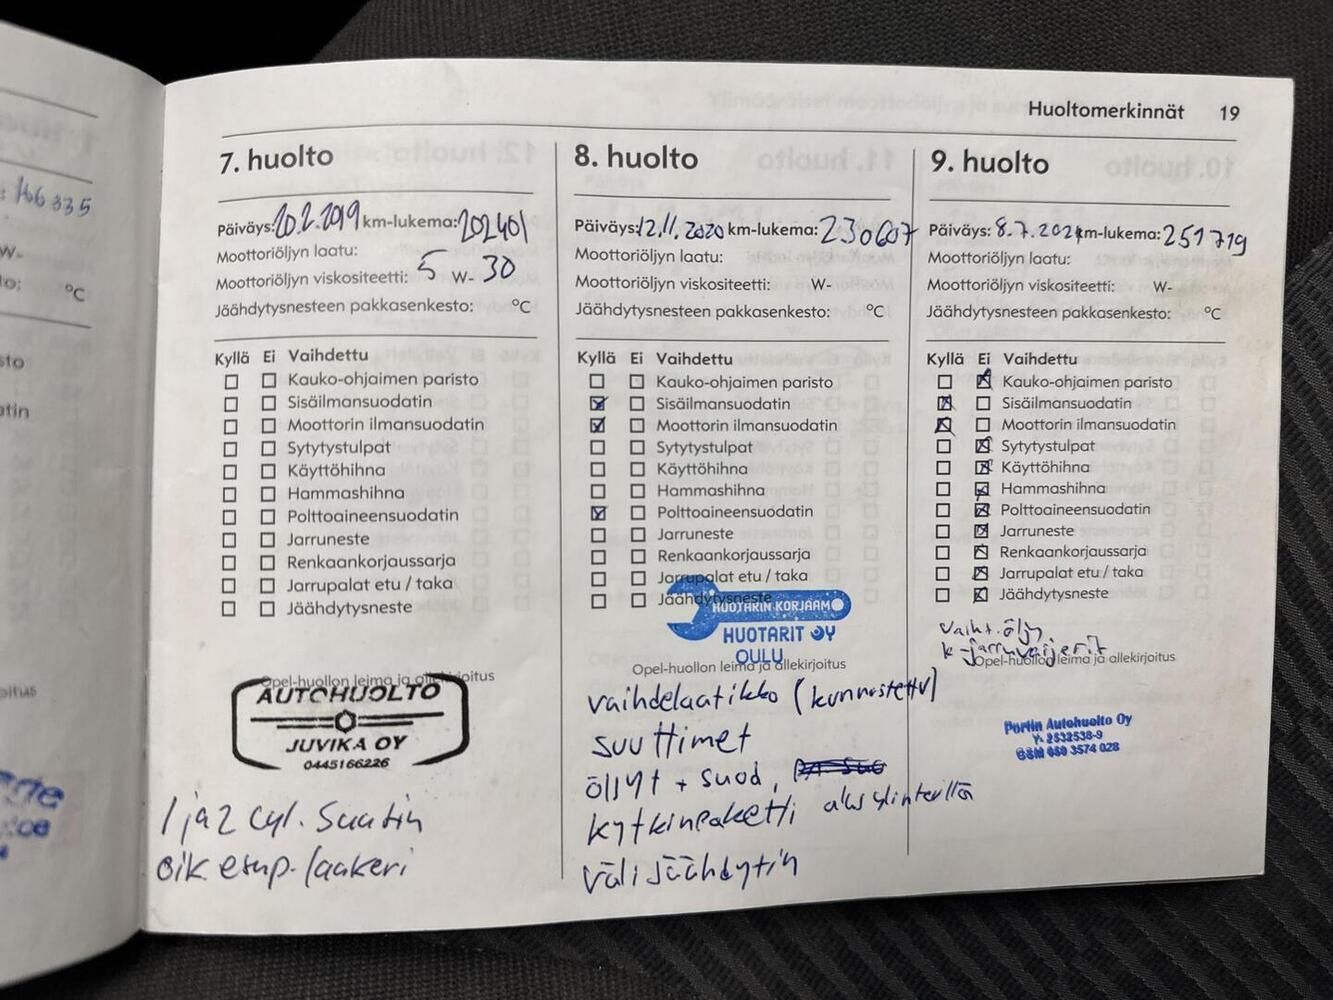 166335
W-
°C
sto
Huoltomerkinnät 19
7. huolto
Päiväys: 20.2.2019 km-lukema: 202401
Moottoriöljyn laatu:
Moottoriöljyn viskositeetti: 5 W- 30
Jäähdytysnesteen pakkasenkesto: °C
Kyllä Ei Vaihdettu
Kauko-ohjaimen paristo
Sisäilmansuodatin
Moottorin ilmansuodatin
Sytytystulpat
Käyttöhihna
Hammashihna
Polttoaineensuodatin
Jarruneste
Renkaankorjaussarja
Jarrupalat etu / taka
Jäähdytysneste
Opel-huollon leima ja allekirjoitus
AUTOHUOLTO
JUVIKA OY
0445166226
1 ja 2 cyl. Suutin
oik. etup. laakeri
8. huolto
Päiväys: 12.11.2020 km-lukema: 230607
Moottoriöljyn laatu:
Moottoriöljyn viskositeetti: W-
Jäähdytysnesteen pakkasenkesto: °C
Kyllä Ei Vaihdettu
Kauko-ohjaimen paristo
Sisäilmansuodatin
Moottorin ilmansuodatin
Sytytystulpat
Käyttöhihna
Hammashihna
Polttoaineensuodatin
Jarruneste
Renkaankorjaussarja
Jarrupalat etu / taka
Jäähdytysneste
HUOTARIN KORJAAMO
HUOTARIT OY
OULU
Opel-huollon leima ja allekirjoitus
vaihdelaatikko (kunnostettu)
suuttimet
öljyt + suod,
kytkinpaketti
välijäähdytin
9. huolto
Päiväys: 8.7.2021 km-lukema: 251719
Moottoriöljyn laatu:
Moottoriöljyn viskositeetti: W-
Jäähdytysnesteen pakkasenkesto: °C
Kyllä Ei Vaihdettu
Kauko-ohjaimen paristo
Sisäilmansuodatin
Moottorin ilmansuodatin
Sytytystulpat
Käyttöhihna
Hammashihna
Polttoaineensuodatin
Jarruneste
Renkaankorjaussarja
Jarrupalat etu / taka
Jäähdytysneste
vaiht. öljy
k-jarruvaijerit
Opel-huollon leima ja allekirjoitus
Portin Autohuolto Oy
Y. 2532538-9
GSM 050 3574 028